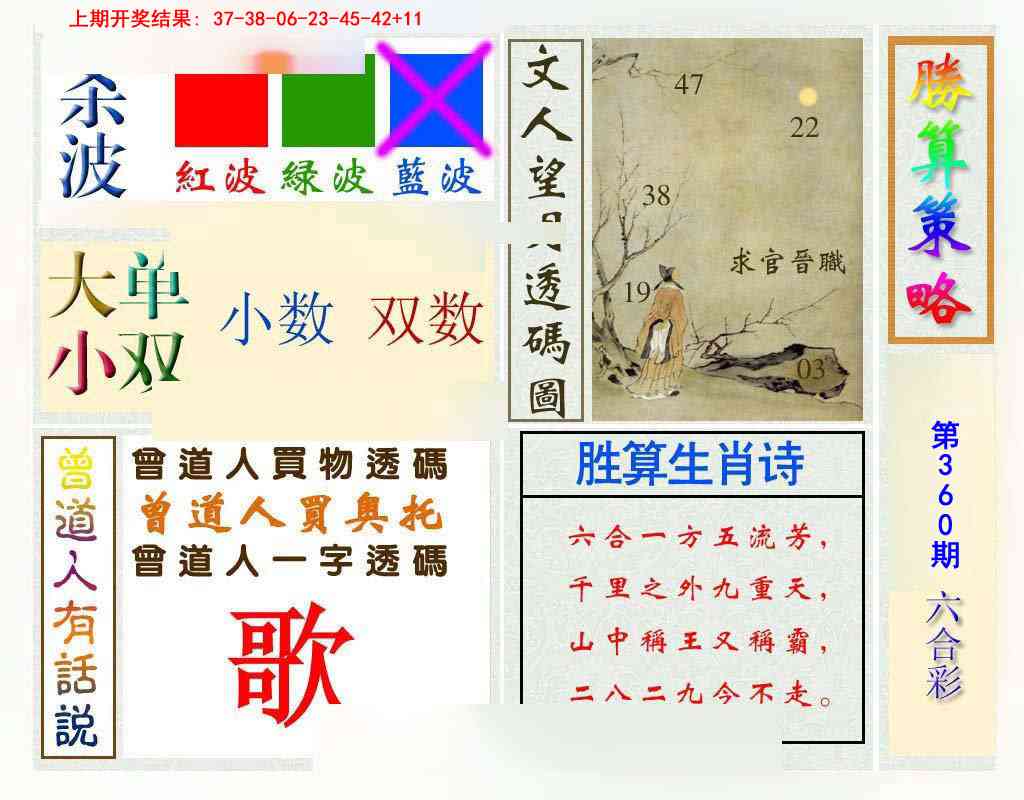 上期开奖结果: 37-38-06-23-45-42+11
波
紅波 緑波 藍波
大单
小双
小数 双数
文人望月透碼圖
47
22
38
求官晋職
19
03
勝算策略
第360期
六合彩
曾道人有話説
曾道人買物透碼
曾道人買奥托
曾道人一字透碼
歌
胜算生肖诗
六合一方五流芳，
千里之外九重天，
山中稱王又稱霸，
二八二九今不走。